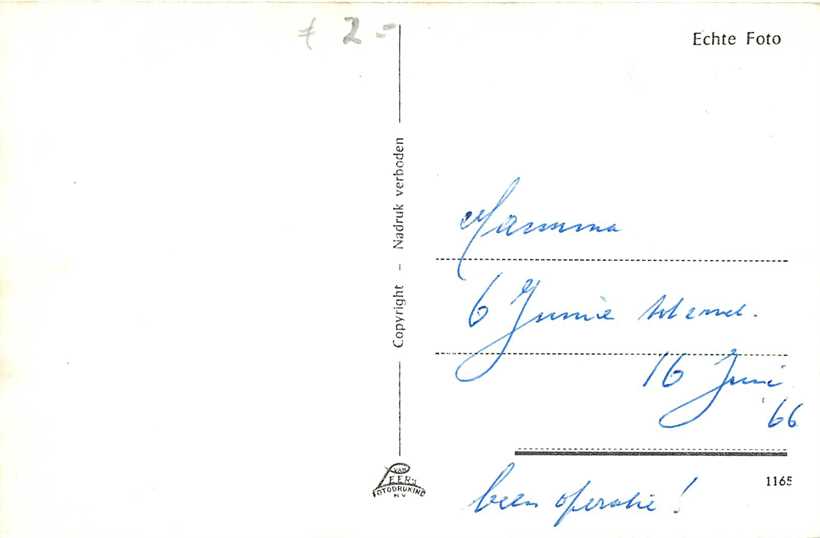 € 2-
Echte Foto
Copyright – Nadruk verboden
Mamma
6 Junie
16 Juni
'66
1165
been operatie!
VAN
LEER'S
FOTODRUKIND
N.V.